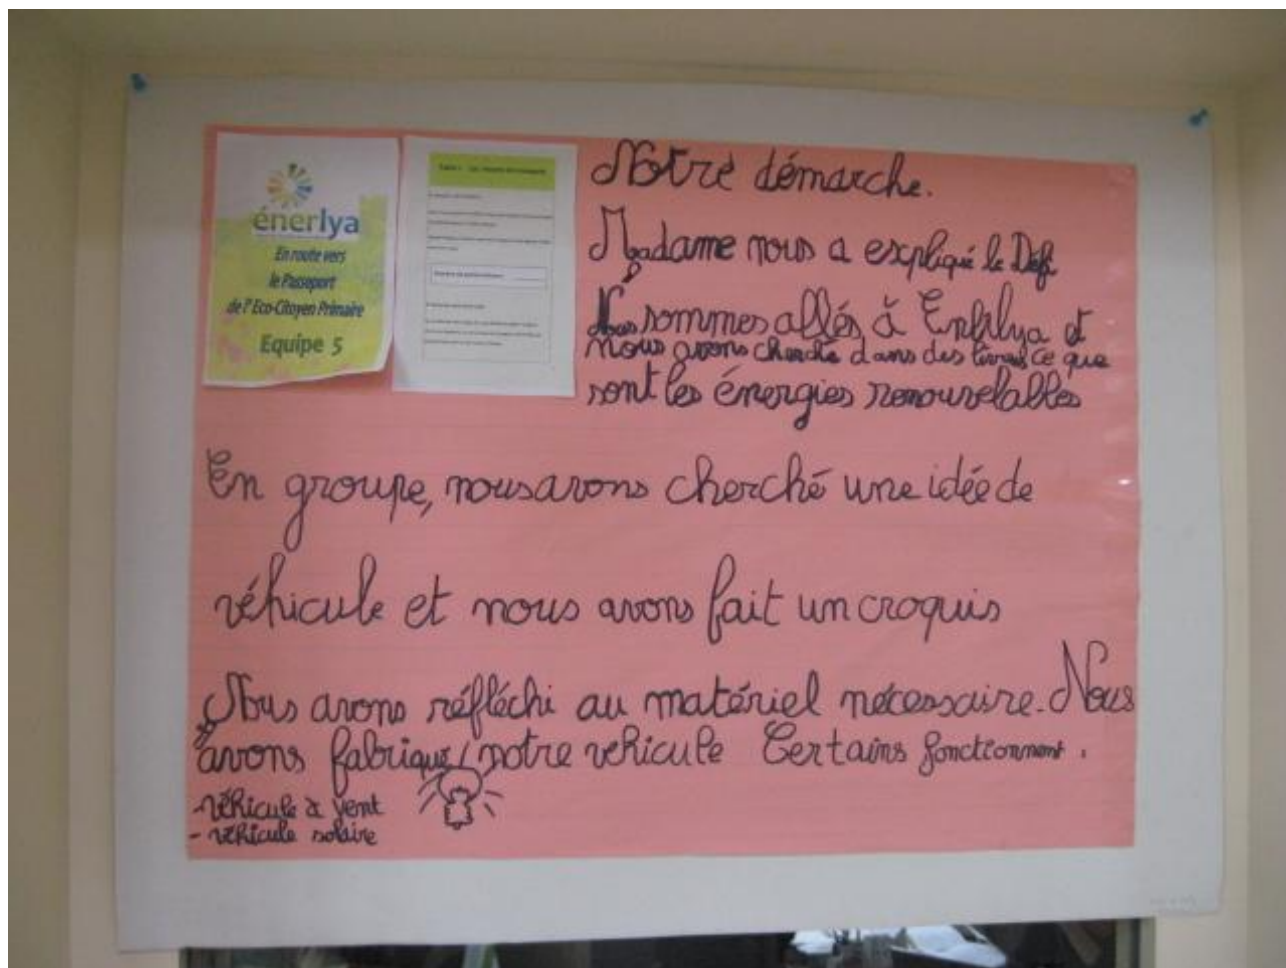 énerlya
En route vers
le Passeport
de l'Eco-Citoyen Primaire
Equipe 5
Notre démarche.
Madame nous a expliqué le Défi
Nous sommes allés à Enerlya et
nous avons cherché dans des livres ce que
sont les énergies renouvelables
En groupe, nous avons cherché une idée de
véhicule et nous avons fait un croquis
Nous avons réfléchi au matériel nécessaire. Nous
avons fabriqué notre vehicule Certains fonctionnent.
- véhicule à vent
- véhicule solaire